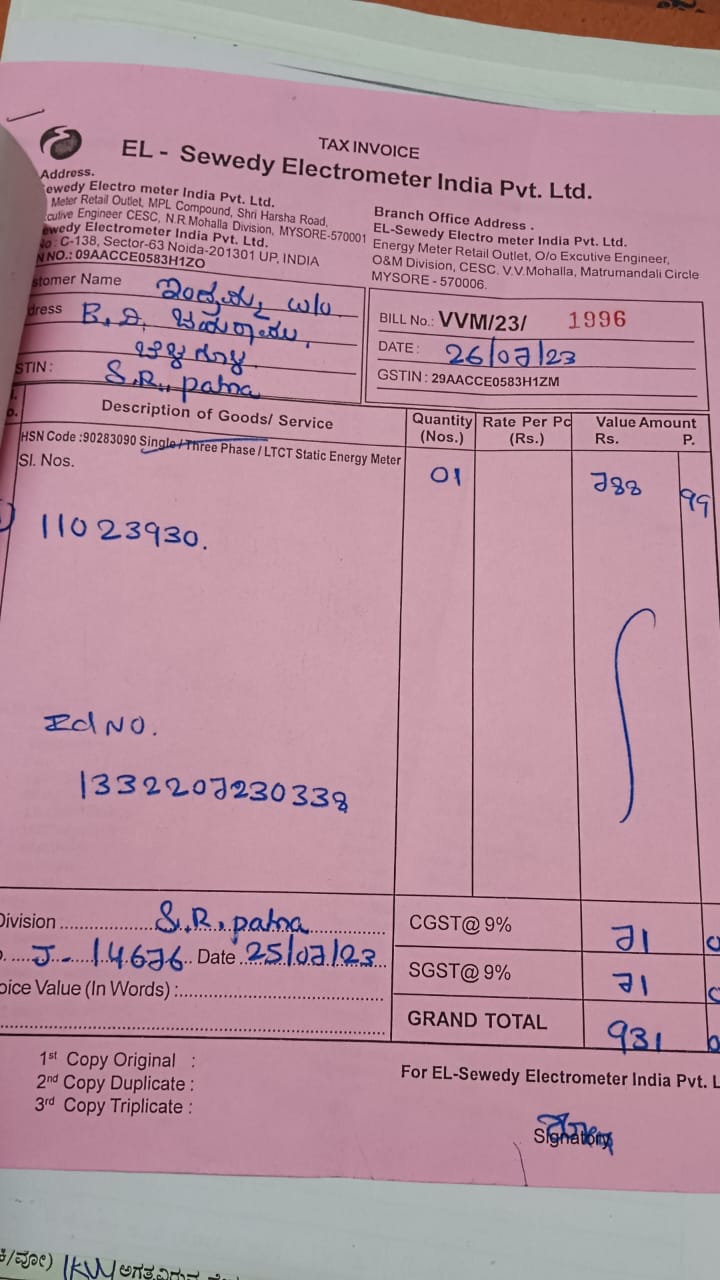 TAX INVOICE
EL - Sewedy Electrometer India Pvt. Ltd.
Address.
ewedy Electro meter India Pvt. Ltd.
Meter Retail Outlet, MPL Compound, Shri Harsha Road,
cutive Engineer CESC, N.R Mohalla Division, MYSORE-570001
ewedy Electrometer India Pvt. Ltd.
No : C-138, Sector-63 Noida-201301 UP, INDIA
N NO.: 09AACCE0583H1ZO
Branch Office Address .
EL-Sewedy Electro meter India Pvt. Ltd.
Energy Meter Retail Outlet, O/o Excutive Engineer,
O&M Division, CESC. V.V.Mohalla, Matrumandali Circle
MYSORE - 570006.
stomer Name w/o
dress B.
STIN : S.R., patna
BILL No.: VVM/23/ 1996
DATE : 26/07/23
GSTIN : 29AACCE0583H1ZM
Description of Goods/ Service Quantity (Nos.) Rate Per Pc (Rs.) Value Amount Rs. P.
HSN Code :90283090 Single / Three Phase / LTCT Static Energy Meter
Sl. Nos. 01 788 99
11023930.
Id NO.
1332207230338
Division S.R, patna CGST@ 9% 71
J - 14676 Date 25/07/23 SGST@ 9% 71
oice Value (In Words) : GRAND TOTAL 931
1st Copy Original :
2nd Copy Duplicate :
3rd Copy Triplicate :
For EL-Sewedy Electrometer India Pvt. L
Signatory